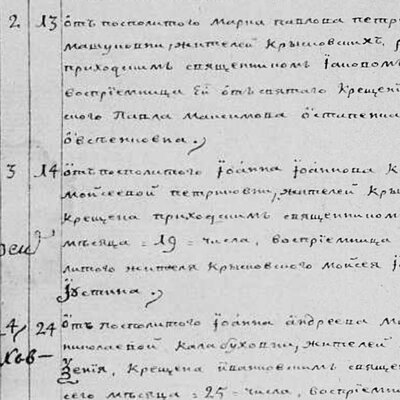 2 13 ѿтъ посполитого Марка Павлова Петр
Машуновни, жителей Крысовскихъ,
приходскимъ священникомъ Іаковомъ
воспріемница Ей ѿтъ святаго Крещені
ского Павла Максимова Остапенка
Ѻвсѣенковна.,
3 14 ѿтъ посполитого Іѡанна Іѡаннова К
Моѵсеевой Петриковни, жителей Кры
крещена приходскимъ священником
мѣсяца = 19 = числа, воспріемница
литого жителя Крысовского Моѵсея
Іустина.,
24 ѿтъ посполитого Іѡанна Андреева Мо
Николаевой Калабуховни, жителей
Ѯенія, Крещена Ивановскимъ свяще
сего мѣсяца = 25 = числа, воспріемни